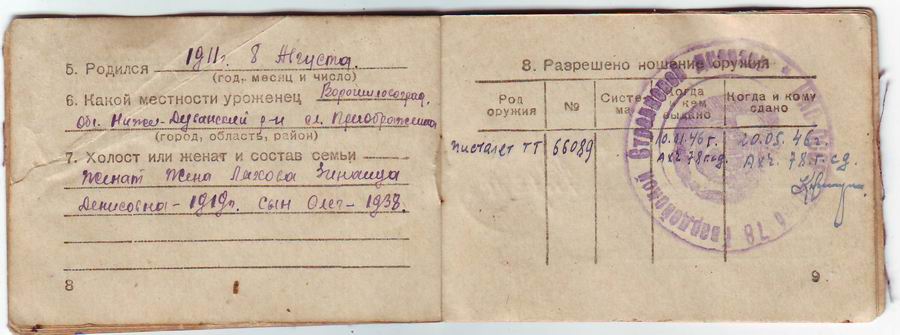 5. Родился 1911г. 8 Августа.
(год, месяц и число)
6. Какой местности уроженец Ворошиловоград.
Обл. Нижне-Дуванский р-н сл. Преображенка
(город, область, район)
7. Холост или женат и состав семьи
Женат Жена Ляхова Зинаида
Денисовна - 1919г. Сын Олег - 1938.
8
8. Разрешено ношение оружия
Род оружия
№
Систе- ма
Когда и кем выдано
Когда и кому сдано
пистолет ТТ
66089
10.11.46 г. Ахч. 78 г. сд.
20.05.46 г. Ахч. 78 г. сд.
78 Гвардейской Стрелковой
9